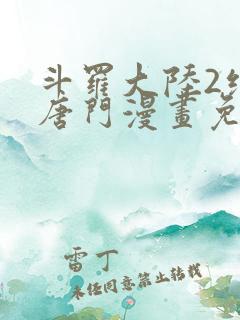 斗羅大陸2
唐門漫畫免
雷丁
未经同意禁止转载